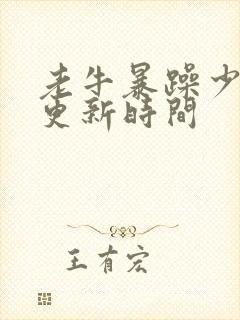 老牛暴躁少
更新時間
王有宏